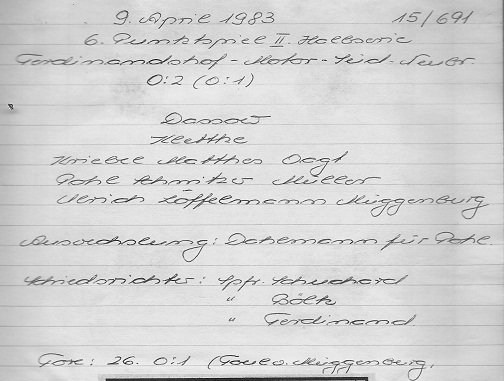 9. April 1983 15/691
6. Punktspiel II. Halbserie
Ferdinandshof - Motor - Süd - Neubr
0:2 (0:1)
Dassow
Klettke
Kriebel Matthes Vagt
Pohl Schmitzer Müller
Ulrich Löffelmann Müggenburg
Auswechslung: Dahlmann für Pohl.
Schiedsrichter: Spfr. Schuchard
" Bölk
" Ferdinand
Tore: 26. 0:1 (Foul v. Müggenburg.